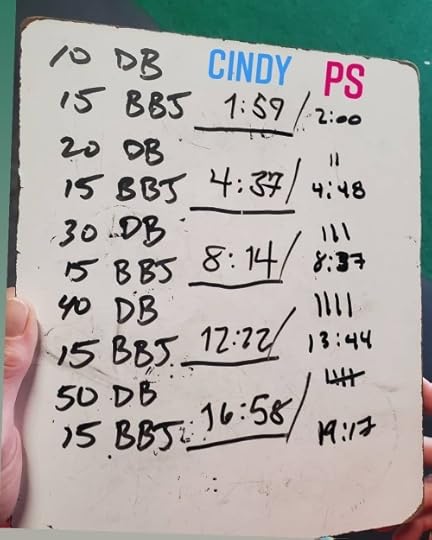 10 DB CINDY PS
15 BBJ 1:59 / 2:00
20 DB ||
15 BBJ 4:37 / 4:48
30 DB |||
15 BBJ 8:14 / 8:37
40 DB ||||
15 BBJ 12:22 / 13:44
50 DB 卌
15 BBJ 16:58 / 19:17